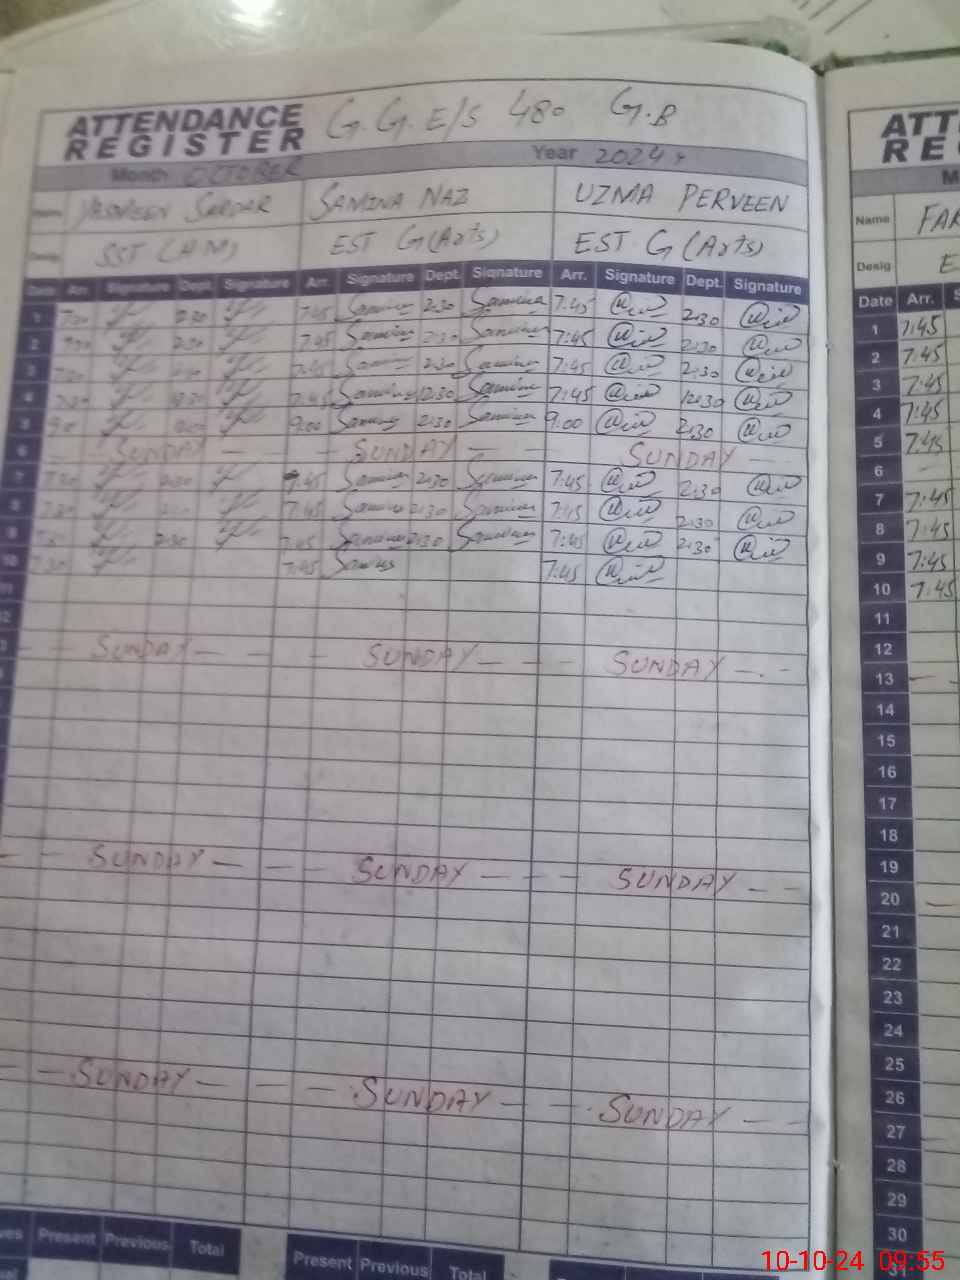 ATTENDANCE REGISTER G.G.E/S 480 G.B
Month OCTOBER Year 2024
Name YASMEEN SARDAR SAMINA NAZ UZMA PERVEEN
Desig SST (H M) EST G (Arts) EST G (Arts)
Date Arr. Signature Dept. Signature Arr. Signature Dept. Signature Arr. Signature Dept. Signature
1 7:30 2:30 7:45 Samina 2:30 Samina 7:45 2:30
2 7:30 2:30 7:45 Samina 2:30 Samina 7:45 2:30
3 7:30 2:30 7:45 Samina 2:30 Samina 7:45 2:30
4 7:30 12:30 7:45 Samina 12:30 Samina 7:45 12:30
5 9:00 Samina 2:30 Samina 9:00 2:30
6 SUNDAY SUNDAY SUNDAY
7 7:30 2:30 7:45 Samina 2:30 Samina 7:45 2:30
8 7:30 7:45 Samina 2:30 Samina 7:45 2:30
9 2:30 7:45 Samina 2:30 Samina 7:45 2:30
10 7:30 7:45 7:45
11
12
SUNDAY SUNDAY SUNDAY
SUNDAY SUNDAY SUNDAY
SUNDAY SUNDAY SUNDAY
Present Previous Total Present Previous Total
Name
Desig
Date Arr.
1 7:45
2 7:45
3 7:45
4 7:45
5 7:45
6
7 7:45
8 7:45
9 7:45
10 7:45
11
12
13
14
15
16
17
18
19
20
21
22
23
24
25
26
27
28
29
30
31
10-10-24 09:55